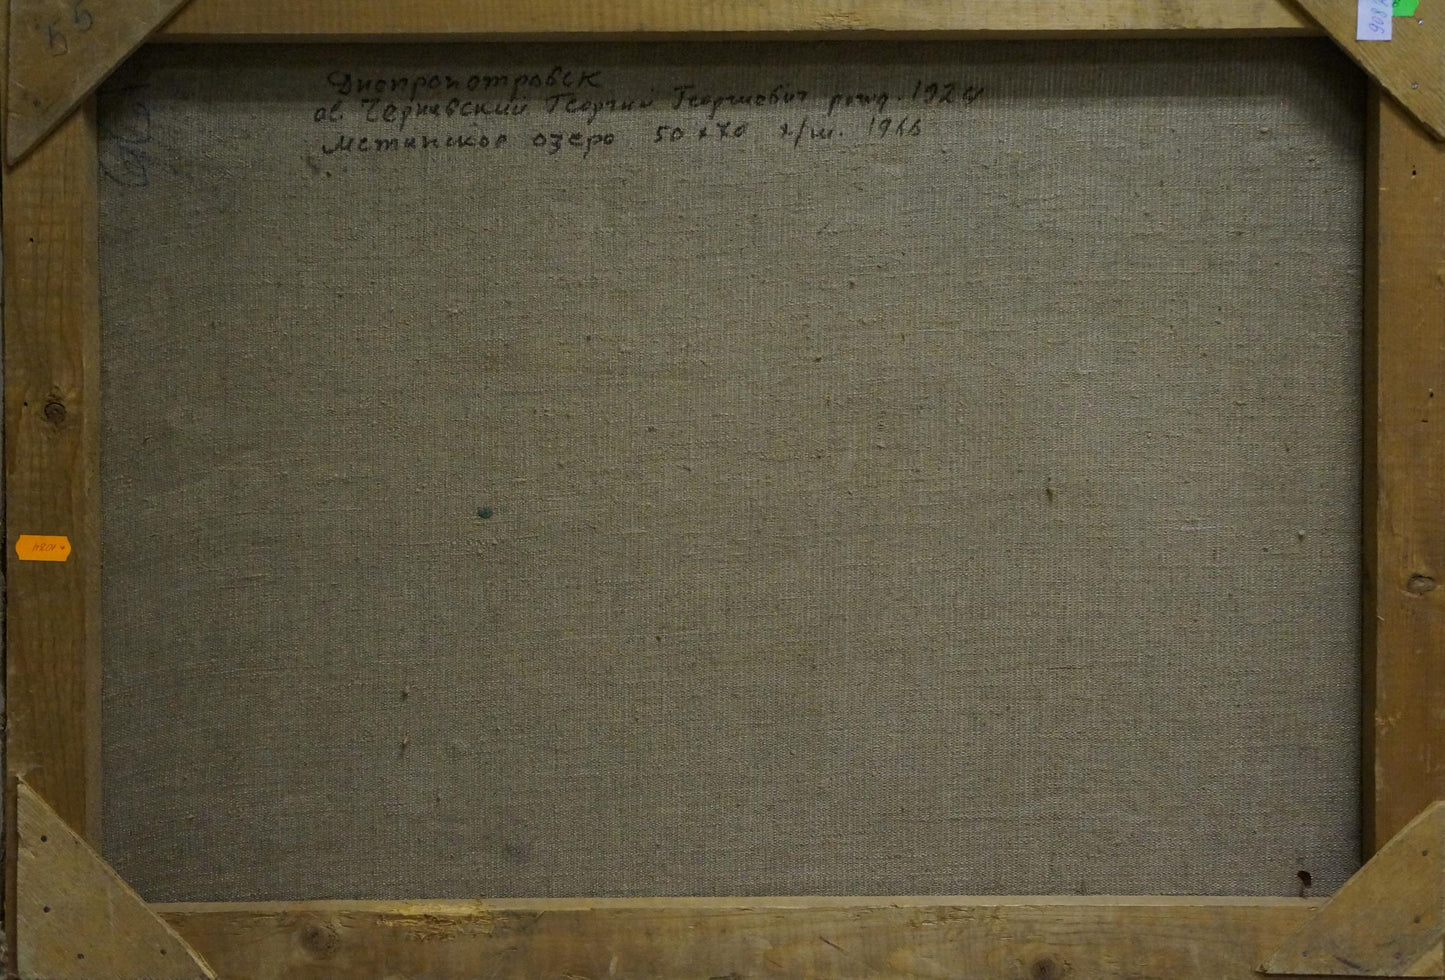 55
Днепропетровск
ав. Чернявский Георгий Георгиевич рожд. 1924
Мстинское озеро 50 x 70 х/м. 1966